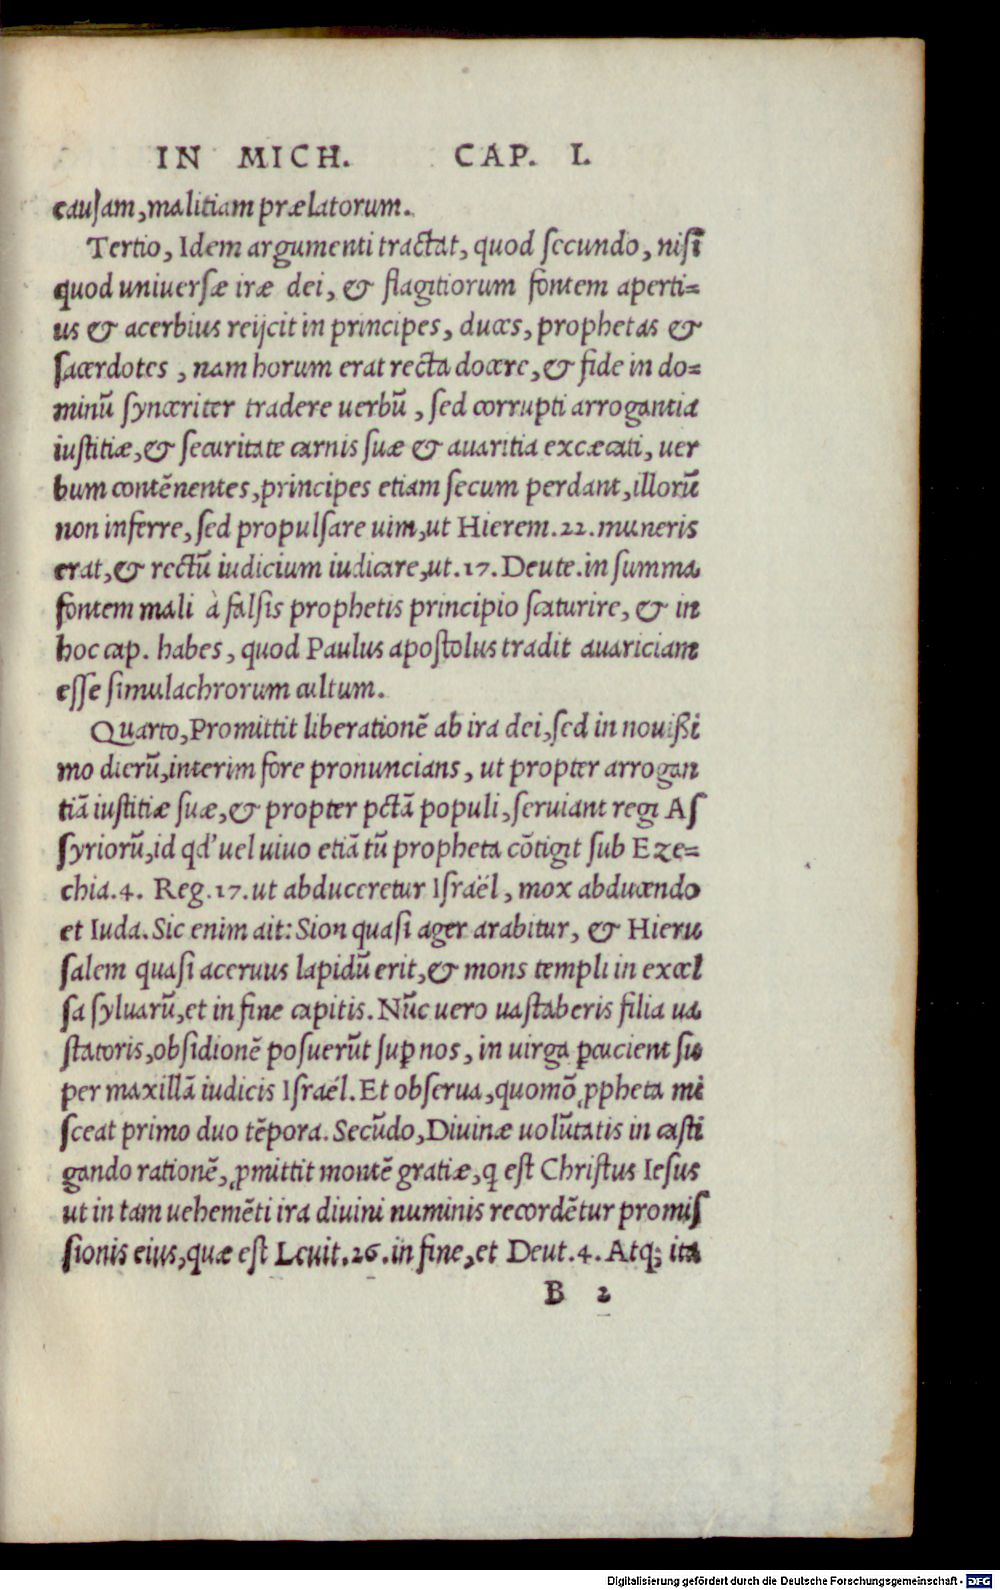 IN MICH. CAP. I.
cauſam, malitiam prælatorum.
Tertio, Idem argumenti tractat, quod ſecundo, niſi
quod univerſæ iræ dei, & flagitiorum fontem aperti=
us & acerbius reijcit in principes, duces, prophetas &
ſacerdotes, nam horum erat recta docere, & fide in do=
minũ ſynceriter tradere uerbũ, ſed corrupti arrogantia
iuſtitiæ, & ſecuritate carnis ſuæ & auaritia excæcati, uer
bum contẽnentes, principes etiam ſecum perdant, illorũ
non inferre, ſed propulſare uim, ut Hierem. 22. muneris
erat, & rectũ iudicium iudicare, ut. 17. Deute. in ſumma
fontem mali à falſis prophetis principio ſcaturire, & in
hoc cap. habes, quod Paulus apoſtolus tradit auariciam
eſſe ſimulachrorum cultum.
Quarto, Promittit liberationẽ ab ira dei, ſed in nouißi
mo dierũ, interim fore pronuncians, ut propter arrogan
tiã iuſtitiæ ſuæ, & propter pctã populi, ſeruiant regi Aſ
ſyriorũ, id qď uel uiuo etiã tũ propheta cõtigit ſub Eze=
chia. 4. Reg. 17. ut abduceretur Iſraël, mox abducendo
et Iuda. Sic enim ait: Sion quaſi ager arabitur, & Hieru
ſalem quaſi aceruus lapidũ erit, & mons templi in excel
ſa ſyluarũ, et in fine capitis. Nũc uero uaſtaberis filia ua
ſtatoris, obſidionẽ poſuerũt ſuꝑ nos, in uirga ꝑcucient ſu
per maxillã iudicis Iſraël. Et obſerua, quomõ ꝓpheta mi
ſceat primo duo tẽpora. Secũdo, Diuinæ uolũtatis in caſti
gando rationẽ, ꝓmittit montẽ gratiæ, q eſt Chriſtus Ieſus
ut in tam uehemẽti ira diuini numinis recordẽtur promiſ
ſionis eius, quæ eſt Leuit. 26. in fine, et Deut. 4. Atq; ita
B 2
Digitalisierung gefördert durch die Deutsche Forschungsgemeinschaft - DFG